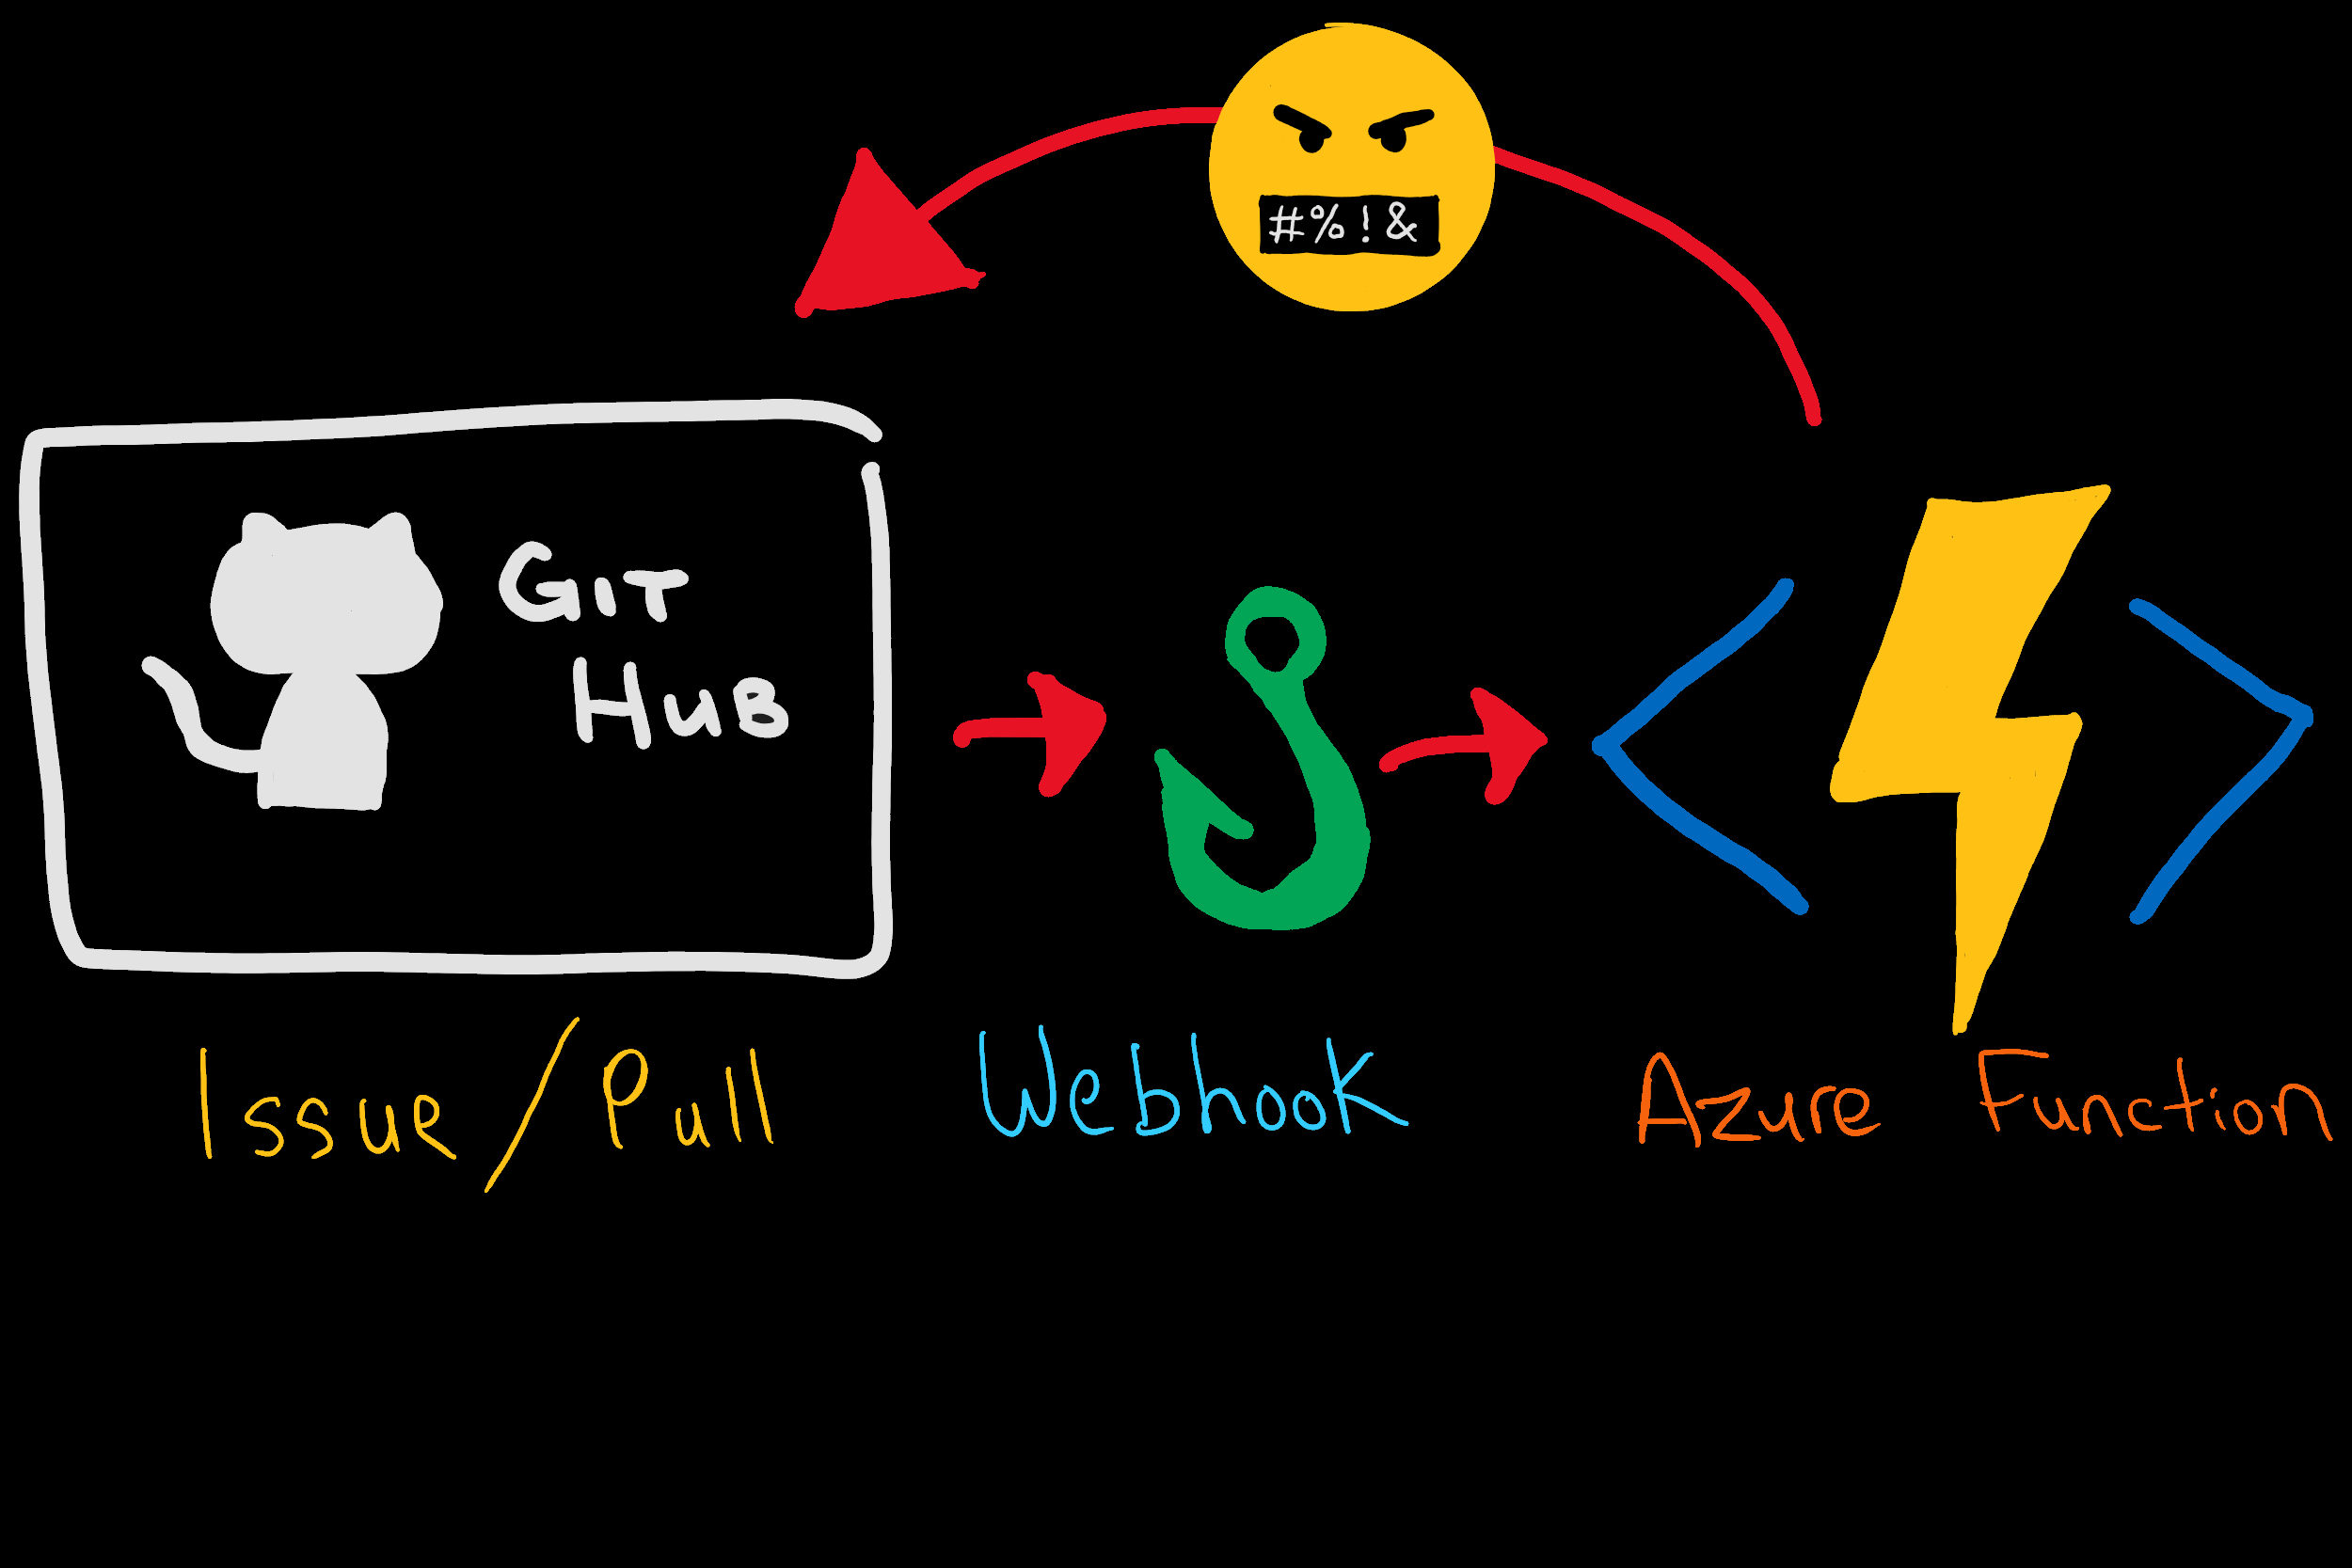 #%!&
GIT
HUB
Issue/Pull
Webhook
Azure Function